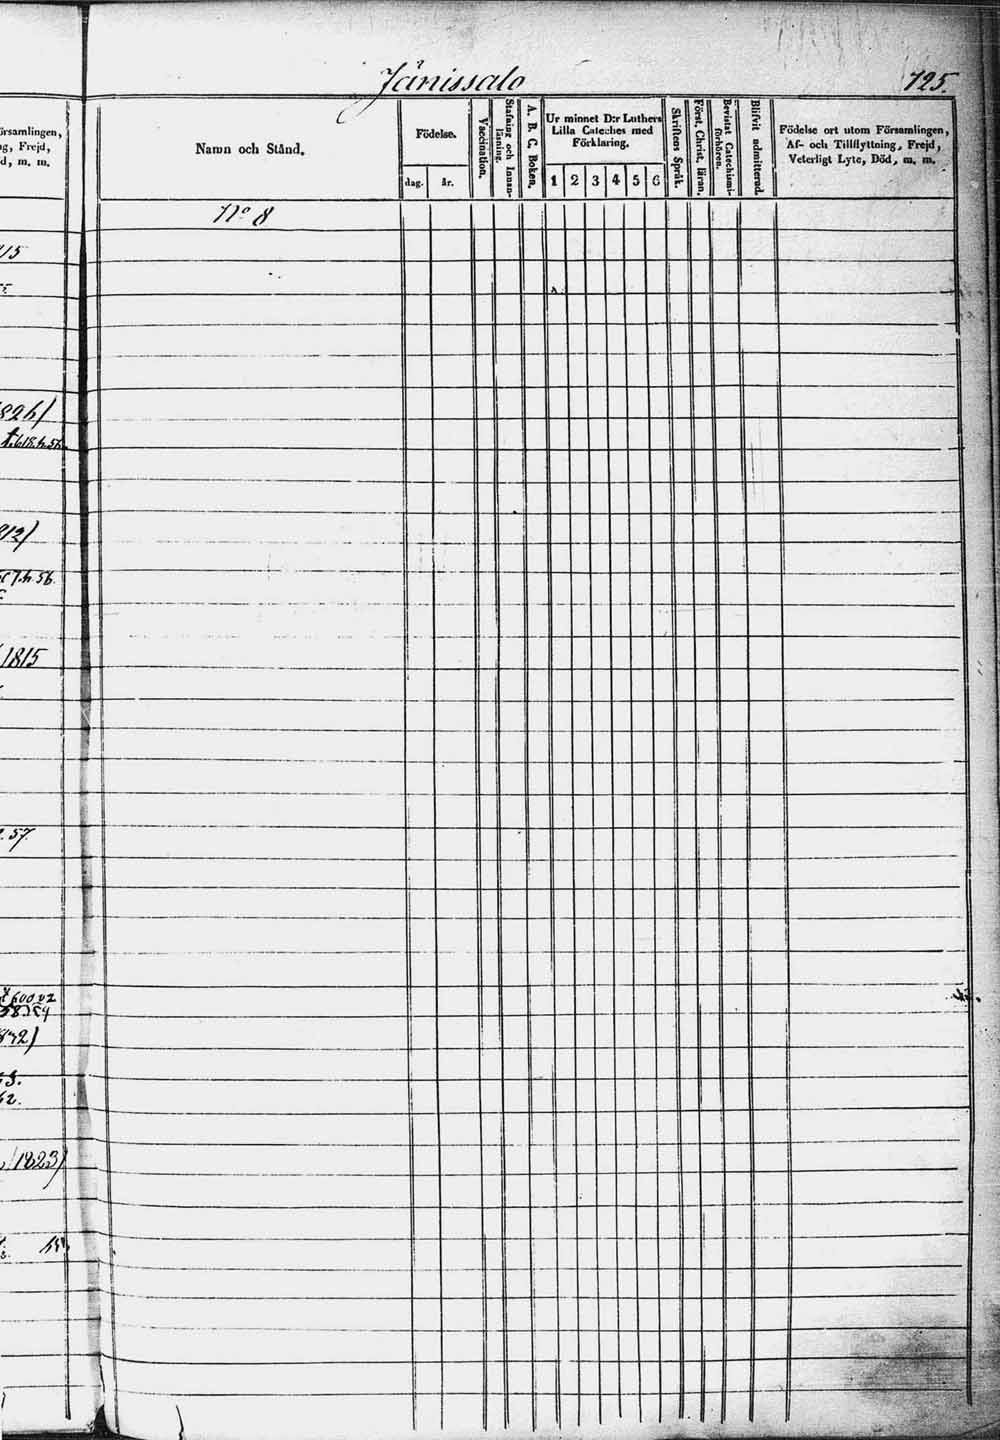 Jänissalo
725.
Namn och Stånd.
Födelse.
dag.
år.
Vaccination.
Stafning och Innan-
läsning.
A. B. C. Boken.
Ur minnet D:r Luthers
Lilla Cateches med
Förklaring.
1 2 3 4 5 6
Skriftens Språk.
Först. Christ. läran.
Bevistat Catechismi-
förhören.
Blifvit admitterad.
Födelse ort utom Församlingen,
Af- och Tillflyttning, Frejd,
Veterligt Lyte, Död, m. m.
No 8
församlingen,
ng, Frejd,
d, m. m.
115
826)
812)
1815
57.
1823)